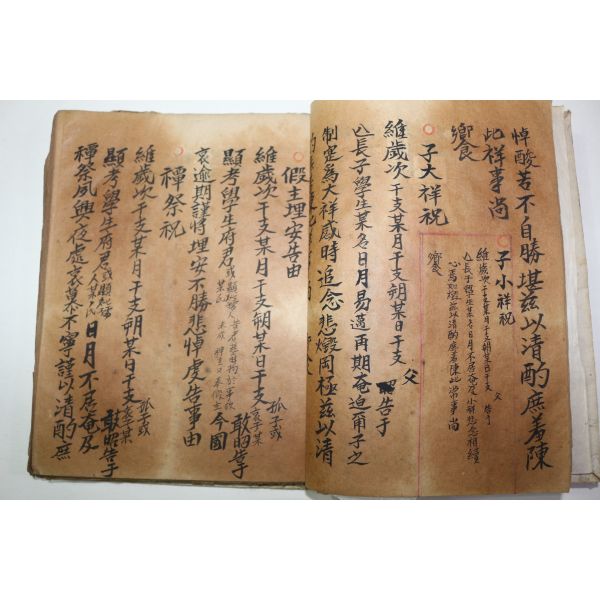 悼酸苦不自勝堪玆以清酌庶羞陳
此祥事尚
饗
子小祥祝
維歲次干支某月干支朔某日干支 父 告于
亡長子學生某名日月不居奄及小祥悲念相續
心焉如燬玆以清酌庶羞陳此常事尚
饗
子大祥祝
維歲次干支某月干支朔某日干支 父 昭告于
亡長子學生某名日月易邁再期奄迫甭子之
制定為大祥感時追念悲燬罔極玆以清
假主埋安告由
維歲次干支某月干支朔某日干支 孤子或哀子某 敢昭告于
顯考學生府君 或顯妣孺人某氏 今國
哀逾期謹將埋安不勝悲悼虔告事由
禫祭祝
維歲次干支某月干支朔某日干支 孤子或哀子某 敢昭告于
顯考學生府君 或顯妣孺人某氏 日月不居奄及
禫祭夙興夜處哀慕不寧謹以清酌庶